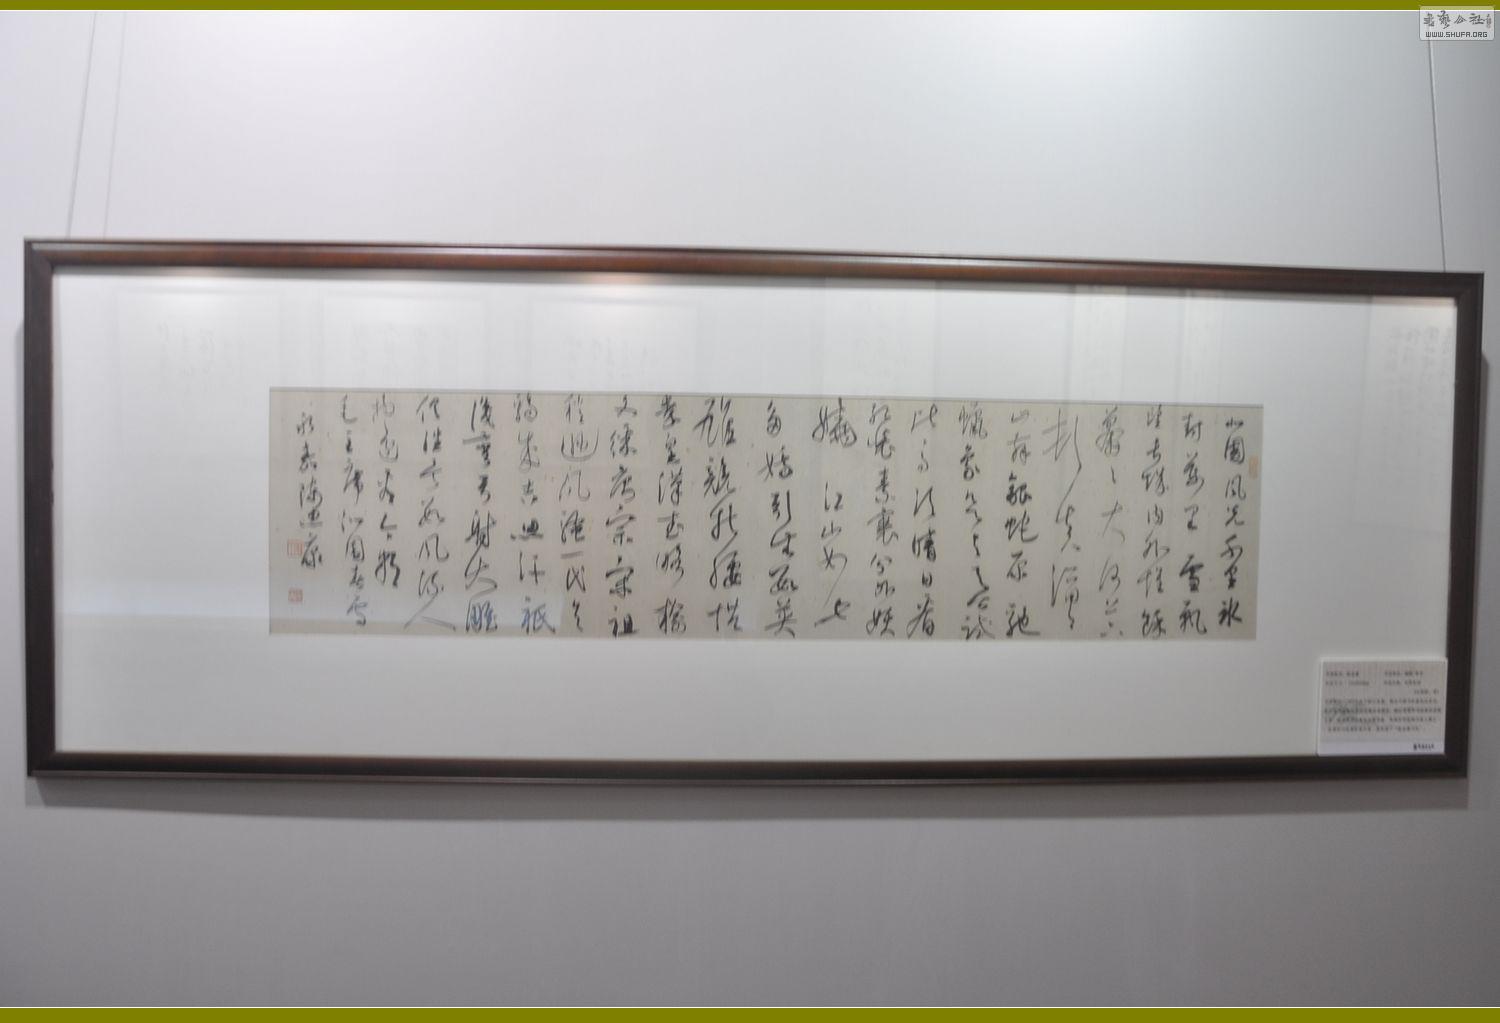 北国风光千里冰
封万里雪飘
望长城内外惟余
莽々大河上下
顿失滔々
山舞银蛇原驰
蜡象欲与天公试
比高须晴日看
红装素裹分外妖
娆 江山如此
多娇引无数英
雄竞折腰惜
秦皇汉武略输
文采唐宗宋祖
稍逊风骚一代天
骄成吉思汗只
识弯弓射大雕
俱往矣数风流人
物还看今朝
毛主席沁园春雪
永嘉陈思康
WWW.SHUFA.ORG